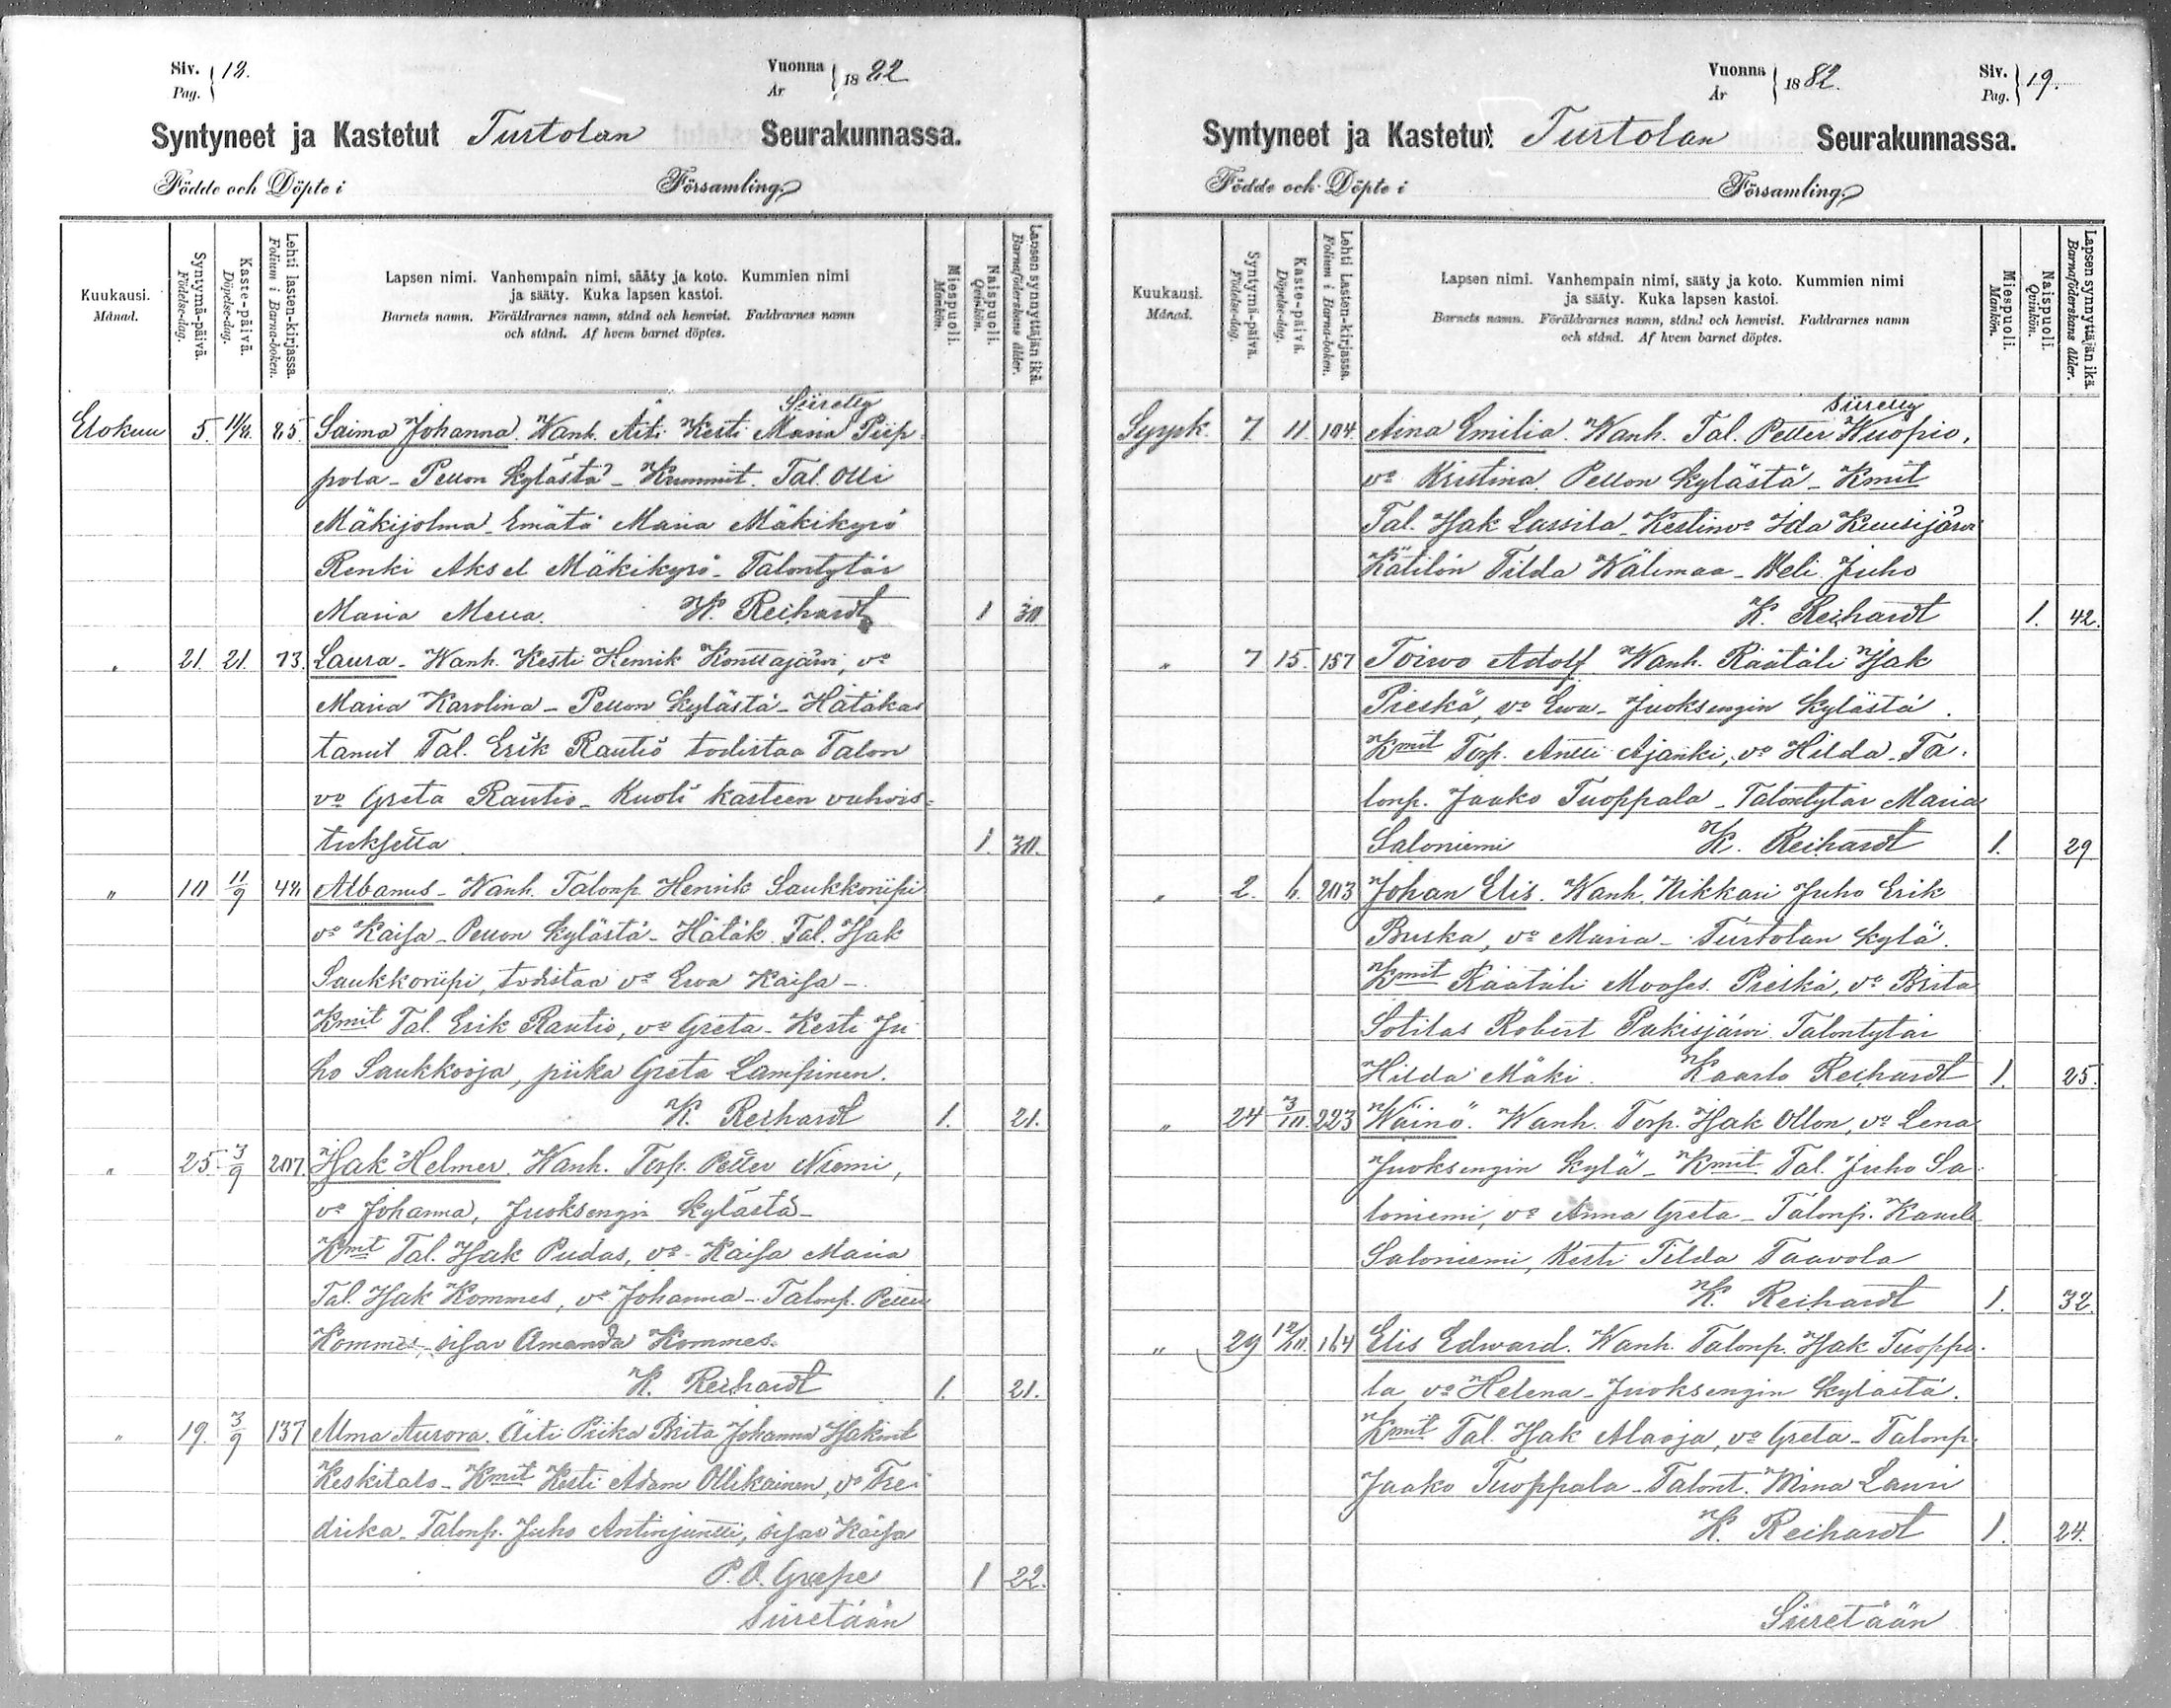 Siv. 18.
Pag.
Vuonna 1882
År
Syntyneet ja Kastetut Turtolan Seurakunnassa.
Födde och Döpte i Församling.
Kuukausi.
Månad.
Syntymä-päivä.
Födelse-dag.
Kaste-päivä.
Döpelse-dag.
Lehti lasten-kirjassa.
Folium i Barna-boken.
Lapsen nimi. Vanhempain nimi, sääty ja koto. Kummien nimi
ja sääty. Kuka lapsen kastoi.
Barnets namn. Föräldrarnes namn, stånd och hemvist. Faddrarnes namn
och stånd. Af hvem barnet döptes.
Miespuoli.
Mankön.
Naispuoli.
Qvinkön.
Lapsen synnyttäjän ikä.
Barnaföderskans ålder.
Siiretty
Elokuu 5. 11/8. 85. Saima Johanna. Wanh. Äiti Kesti Maria Piip-
pola - Pellon kylästä - Kummit. Tal. Olli
Mäkijolma - Emätä Maria Mäkikyrö
Renki Aksel Mäkikyrö - Talontytär
Maria Mella. K. Reihardt 1 30
" 21. 21. 73. Laura - Wanh. Kesti Henrik Konttajärwi, vo
Maria Karolina - Pellon kylästä - Hätäkas
tanut Tal. Erik Rautio todistaa Talon
vo Greta Rautio - Kuoli kasteen vahvis=
tuksetta. 1. 30.
" 10 11/9 48 Albanus - Wanh. Talonp. Henrik Saukkoriipi
vo Kaisa - Pellon kylästä - Hätäk. Tal. Isak
Saukkoriipi, todistaa vo Ewa Kaisa -
Kmit Tal. Erik Rautio, vo Greta - Kesti Ju
ho Saukkooja, piika Greta Lampinen.
K. Reihardt 1. 21.
" 25 3/9 207. Isak Helmer. Wanh. Torp. Petter Niemi,
vo Johanna, Juoksengin kylästä -
Kmt Tal. Isak Pudas, vo Kaisa Maria
Tal. Isak Kommes, vo Johanna - Talonp. Petter
Kommes, sisar Amanda Kommes.
K. Reihardt 1. 21.
" 19. 3/9 137 Alma Aurora. Äiti Piika Brita Johanna Isakint
Keskitalo - Kmit Kesti Adam Ollikainen, vo Fre
drika - Talonp. Juho Antinjuntti, sisar Kaisa
P. O. Grape 1 22.
Siiretään
Vuonna 1882.
År
Siv. 19.
Pag.
Syntyneet ja Kastetut Turtolan Seurakunnassa.
Födde och Döpte i Församling.
Kuukausi.
Månad.
Syntymä-päivä.
Födelse-dag.
Kaste-päivä.
Döpelse-dag.
Lehti Lasten-kirjassa.
Folium i Barna-boken.
Lapsen nimi. Vanhempain nimi, sääty ja koto. Kummien nimi
ja sääty. Kuka lapsen kastoi.
Barnets namn. Föräldrarnes namn, stånd och hemvist. Faddrarnes namn
och stånd. Af hvem barnet döptes.
Miespuoli.
Mankön.
Naispuoli.
Qvinkön.
Lapsen synnyttäjän ikä.
Barnaföderskans ålder.
Siiretty
Syysk. 7 11. 104. Aina Emilia. Wanh. Tal. Petter Wuopio,
vo Kristina. Pellon kylästä - Kmit
Tal. Isak Lassila - Kestinvo Ida Kuusijärwi
Kätilön Tilda Wälimaa - Weli Juho
K. Reihardt 1. 42.
" 7 15. 157 Toiwo Adolf. Wanh. Räätäli Isak
Pieskä, vo Ewa - Juoksengin kylästä.
Kmit Torp. Antti Ajanki, vo Hilda - Ta.
lonp. Jaako Tuoppala - Talontytär Maria
Saloniemi K. Reihardt 1. 29
" 2. 6. 203 Johan Elis. Wanh. Nikkari Juho Erik
Buska, vo Maria - Turtolan kylä.
Kmit Räätäli Mooses Prieskä, vo Brita
Sotilas Robert Pukisjärwi. Talontytär
Hilda Mäki. Kaarlo Reihardt 1. 25.
" 24 3/10. 223 Wäinö. Wanh. Torp. Isak Ollon, vo Lena
Juoksengin kylä - Kmit Tal. Juho Sa
loniemi, vo Anna Greta - Talonp.
Saloniemi, Kesti Tilda Taavola
K. Reihardt 1. 32.
" 29 12/10. 164 Elis Edward. Wanh. Talonp. Isak Tuoppa.
la vo Helena - Juoksengin kylästä.
Kmit Tal. Isak Alaoja, vo Greta - Talonp.
Jaako Tuoppala - Talont. Mina Lauri
K. Reihardt 1. 24.
Siiretään